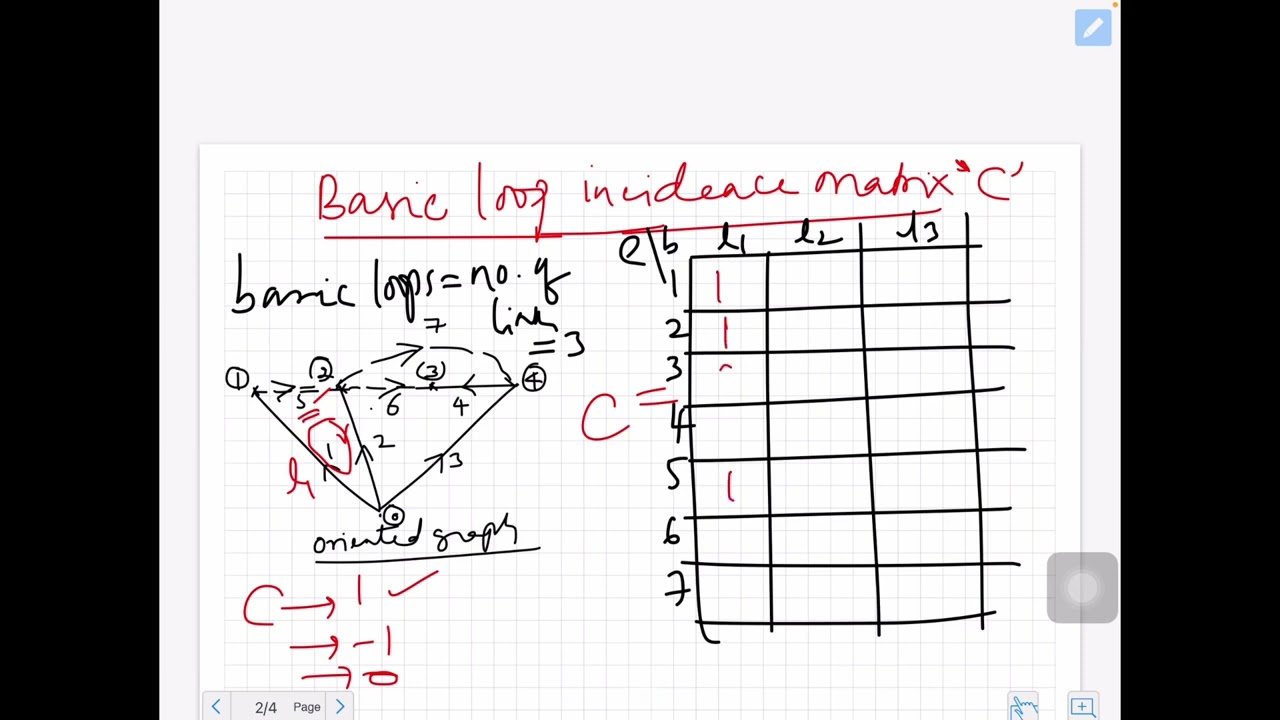 Basic loop incideace matrix "C'
basic loops = no. of
link
= 3
7
① ② (3) ④
5 6 4
1 2 3
l1
⓪
oriented graph
C → 1 ✓
→ -1
→ 0
C =
e\b l1 l2 l3
1 1
2 1
3
4
5 1
6
7
2/4 Page